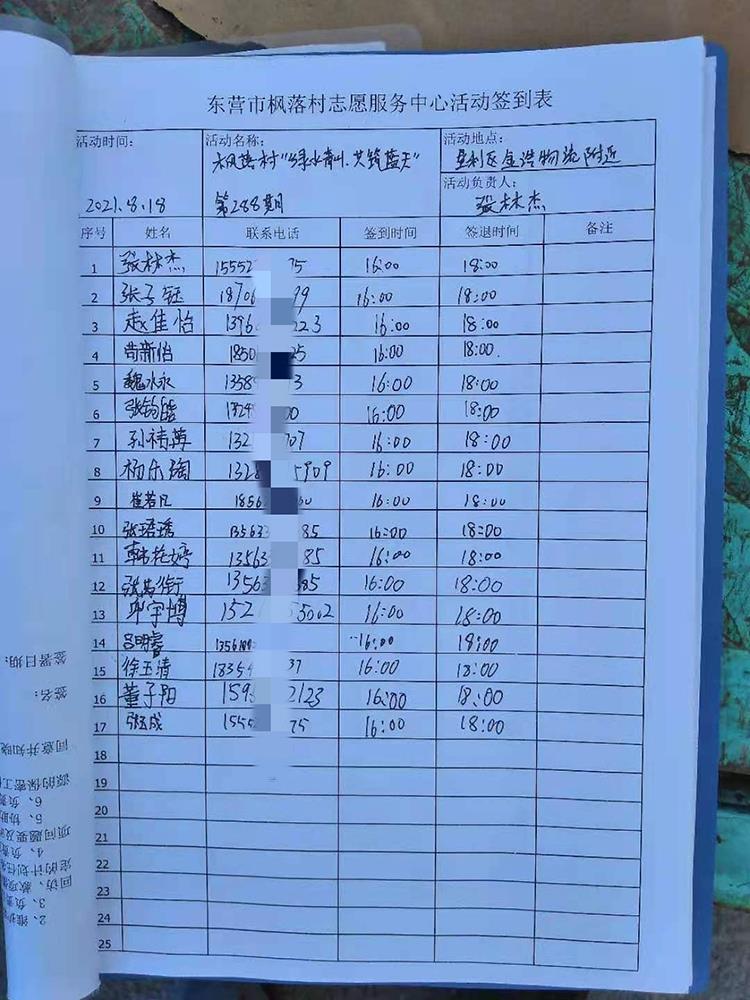 东营市枫落村志愿服务中心活动签到表
活动时间: 活动名称: 活动地点:
枫落村"绿水青山.共筑蓝天" 垦利区金浩物流附近
活动负责人:
2021.8.18 第288期 张林杰
序号 姓名 联系电话 签到时间 签退时间 备注
1 张林杰 15552 75 16:00 18:00
2 张子钰 1870 99 16:00 18:00
3 赵佳怡 1396 223 16:00 18:00
4 苟新怡 1850 25 16:00 18:00.
5 魏水永 1358 3 16:00 18:00
6 张钧 00 16:00 18:00
7 孙祎苒 132 707 16:00 18:00
8 杨乐陶 1328 5909 16:00 18:00
9 崔若凡 1856 60 16:00 18:00
10 张珺琇 135633 85 16:00 18:00
11 韩 13563 85 16:00 18:00
12 张 衍 13563 385 16:00 18:00
13 宇博 152 5002 16:00 18:00
14 吕明睿 1356 16:00 18:00
15 徐玉清 18354 37 16:00 18:00
16 董子阳 159 2123 16:00 18:00
17 成 1555 75 16:00 18:00
18
19
20
21
22
23
24
25
签署日期:
签名:
同意并知晓
源的保密工
6、负责
5、协助
项问题要及
4、负责
定的计划任
回访、款项
3、负责
2、维护